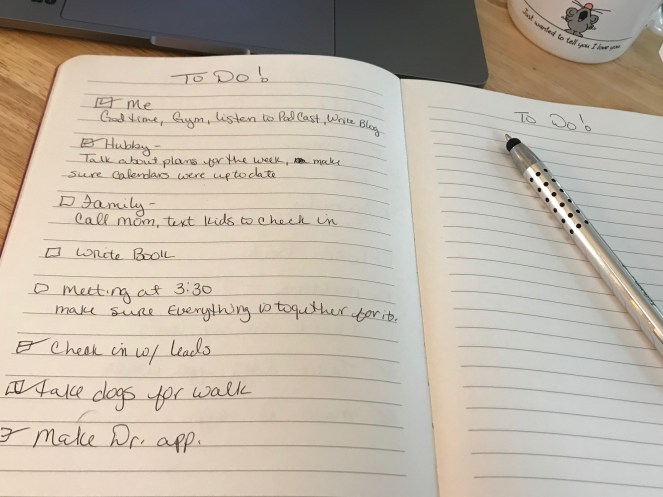 To Do!
To Do!
Me
God time, Gym, Listen to Pod Cast, Write Blog
Hubby -
Talk about plans for the week, make
sure calendars were up to date
Family -
Call mom, text kids to check in
Write Book
Meeting at 3:30
make sure Everything is together for it.
Check in w/ leads
Take dogs for walk
Make Dr. app.
Just wanted to tell you I love you